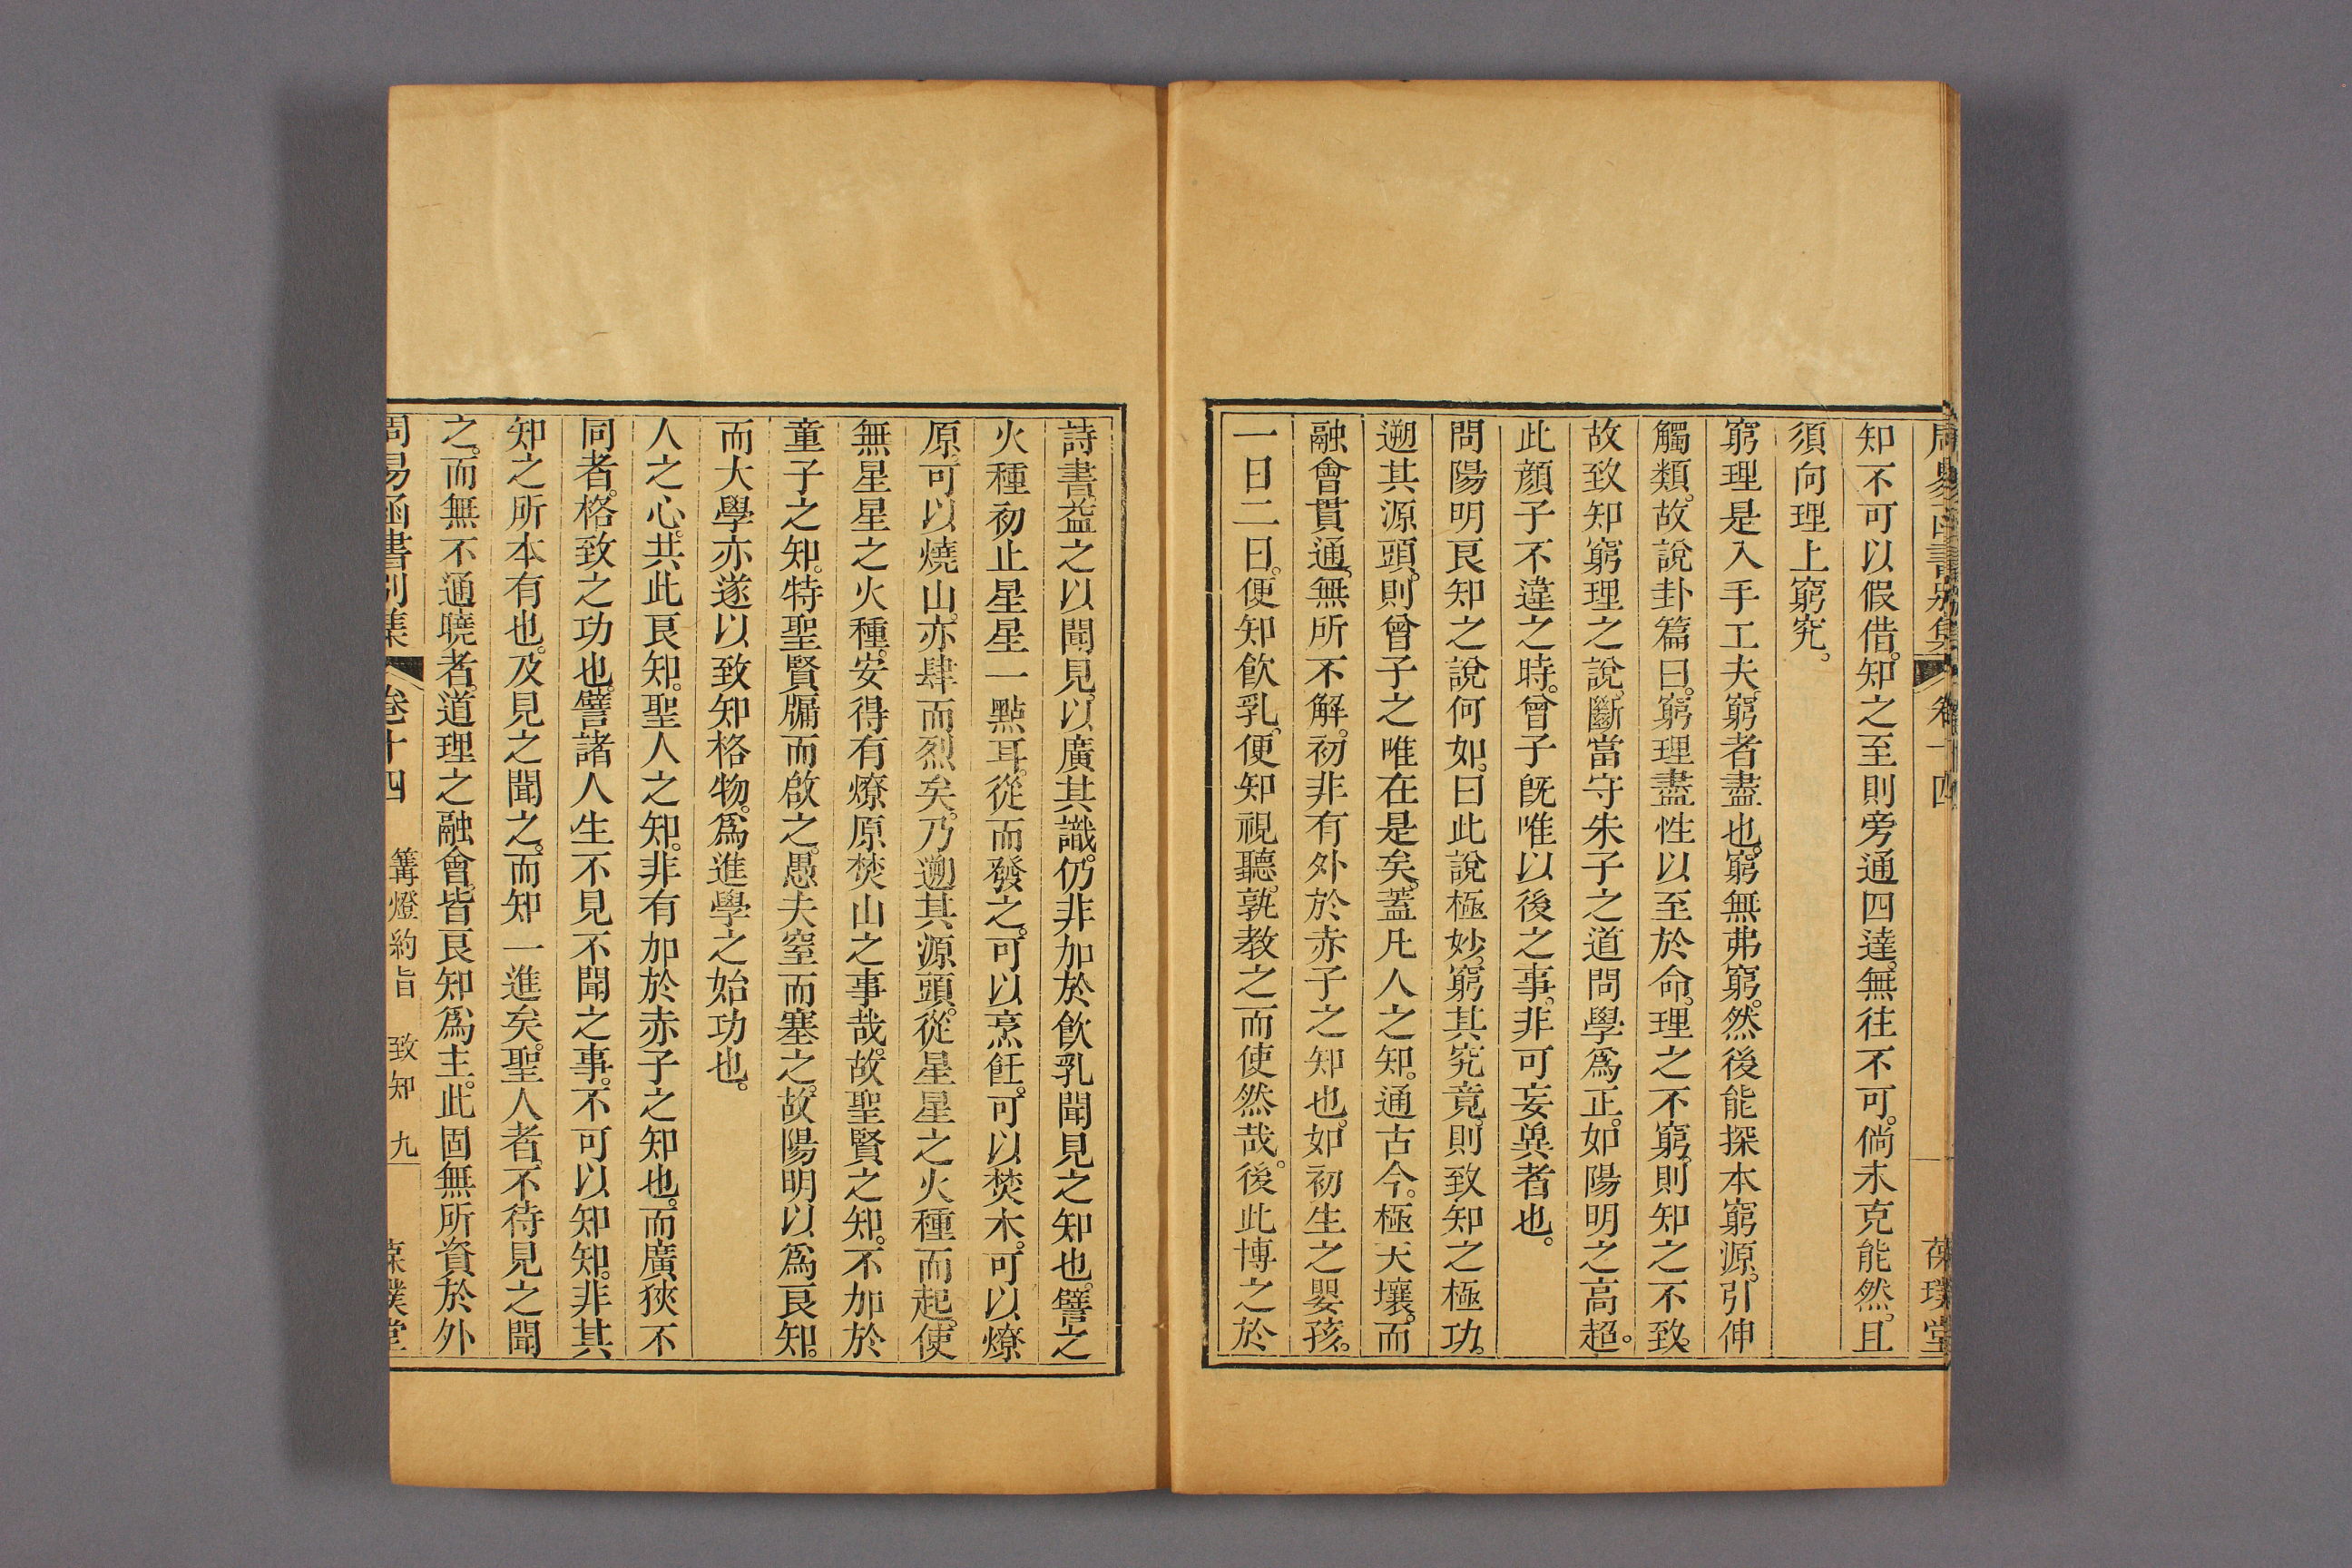 周易函書別集 卷十四 葆璞堂
知不可以假借。知之至則旁通四達。無往不可。倘未克能然。且
須向理上窮究。
窮理是入手工夫。窮者盡也。窮無弗窮。然後能探本窮源。引伸
觸類。故說卦篇曰。窮理盡性以至於命。理之不窮。則知之不致。
故致知窮理之說。斷當守朱子之道問學爲正。如陽明之高超。
此顔子不違之時。曾子旣唯以後之事。非可妄兾者也。
問陽明良知之說何如。曰此說極妙。窮其究竟。則致知之極功。
遡其源頭。則曾子之唯在是矣。蓋凡人之知。通古今。極天壤。而
融會貫通。無所不解。初非有外於赤子之知也。如初生之嬰孩。
一日二日。便知飮乳。便知視聽。孰教之而使然哉。後此博之於
詩書。益之以聞見。以廣其識。仍非加於飮乳聞見之知也。譬之
火種初止星星一點耳。從而發之。可以烹飪。可以焚木。可以燎
原。可以燒山。亦肆而烈矣。乃遡其源頭。從星星之火種而起。使
無星星之火種。安得有燎原焚山之事哉。故聖賢之知。不加於
童子之知。特聖賢牖而啟之。愚夫窒而塞之。故陽明以爲良知。
而大學亦遂以致知格物。爲進學之始功也。
人之心。共此良知。聖人之知。非有加於赤子之知也。而廣狹不
同者。格致之功也。譬諸人生不見不聞之事。不可以知知。非其
知之所本有也。及見之聞之。而知一進矣。聖人者。不待見之聞
之。而無不通曉者。道理之融會。皆良知爲主。此固無所資於外
周易函書別集 卷十四 篝燈約旨 致知 九 葆璞堂